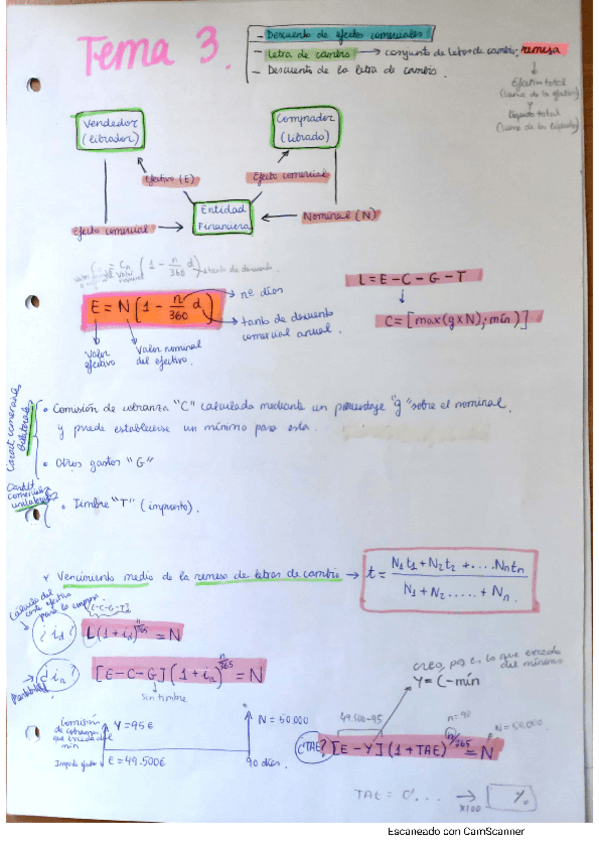 Tema 3.
- Descuento de efectos comerciales
- Letra de cambio → conjunto de letras de cambio: remesa
- Descuento de la letra de cambio.
Efectivo total
(suma de los efectivos)
y
líquido total
(suma de los líquidos)
Vendedor
(librador)
Comprador
(librado)
Efectivo (E)
Efecto comercial
Entidad
Financiera
Efecto comercial
Nominal (N)
tanto de descuento
L = E - C - G - T
E = N (1 - n/360 d)
nº días
tanto de descuento
comercial anual.
C = [max(g x N); mín)]
Valor
efectivo
Valor nominal
del efectivo.
Caract. comerciales
bilaterales
• Comisión de cobranza "C" calculada mediante un porcentaje "g" sobre el nominal,
y puede establecerse un mínimo para esta.
• Otros gastos "G"
comerciales
unilaterales
• Timbre "T" (impuesto).
Vencimiento medio de la remesa de letras de cambio → t = (N1t1 + N2t2 + .... Nntn) / (N1 + N2 ..... + Nn.)
Cálculo del
coste efectivo
para la empresa
[E-C-G-T]
¿id? L(1 + id)^n/365 = N
¿ia? [E - C - G](1 + ia)^n/365 = N
sin timbre
creo, pq es lo que excede
del mínimo
Y = C - mín
Comisión
de cobranza
que exceda del
mín
Y = 95€
N = 50.000
49.500-95
n = 90
N = 50.000
¿TAE? [E - Y](1 + TAE)^n/365 = N
E = 49.500€
90 días.
TAE = 0'... → x100 %
Escaneado con CamScanner